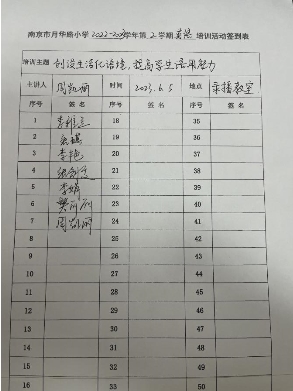 南京市月华路小学2022-2023学年第2学期英语培训活动签到表
培训主题 创设生活化语境,提高学生语用能力
主讲人 周凯丽 时间 2023.6.5 地点 录播教室
序号 签名 序号 签名 序号 签名
1 18 35
2 19 36
3 李艳 20 37
4 21 38
5 李娟 22 39
6 樊丽丽 23 40
7 周凯丽 24 41
8 25 42
9 26 43
10 27 44
11 28 45
12 29 46
13 30 47
14 31 48
15 32 49
16 33 50